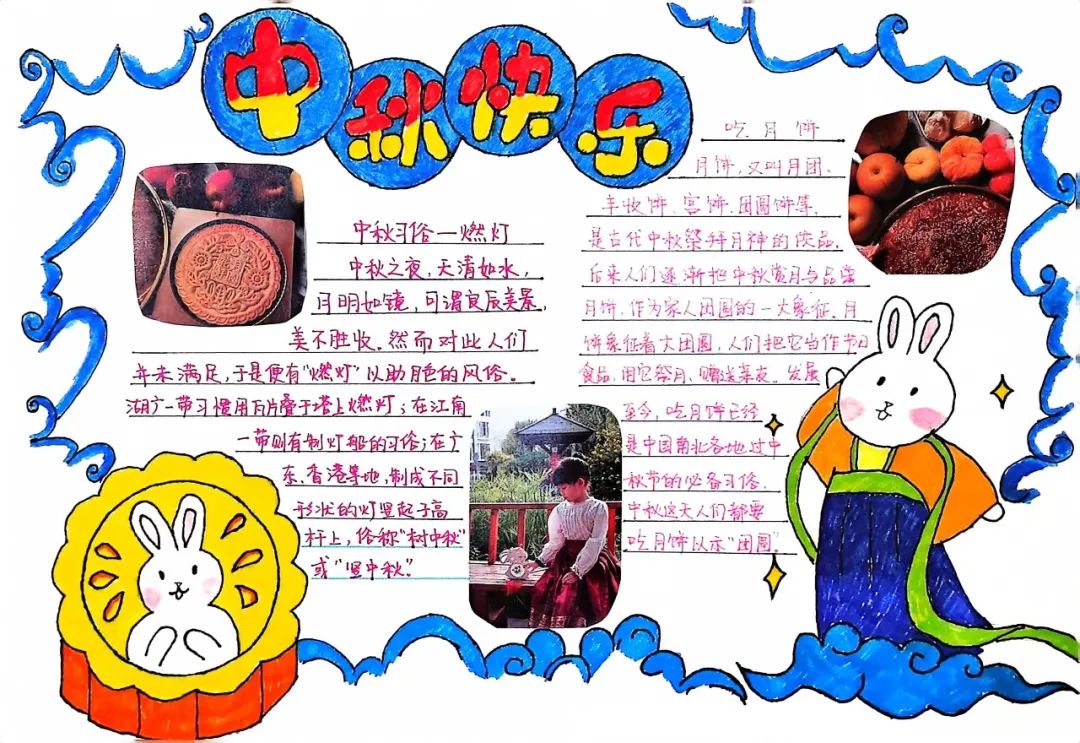 中秋快乐
中秋习俗—燃灯
中秋之夜，天清如水，
月明如镜，可谓良辰美景，
美不胜收。然而对此人们
并未满足，于是便有“燃灯”以助月色的风俗。
湖广一带习惯用瓦片叠于塔上燃灯；在江南
一带则有制灯船的习俗；在广
东、香港等地，制成不同
形状的灯竖起于高
杆上，俗称“树中秋”
或“竖中秋”。
吃月饼
月饼，又叫月团、
丰收饼、宫饼、团圆饼等，
是古代中秋祭拜月神的供品。
后来人们逐渐把中秋赏月与品尝
月饼，作为家人团圆的一大象征。月
饼象征着大团圆，人们把它当作节日
食品，用它祭月、赠送亲友。发展
至今，吃月饼已经
是中国南北各地过中
秋节的必备习俗，
中秋这天人们都要
吃月饼以示“团圆”。